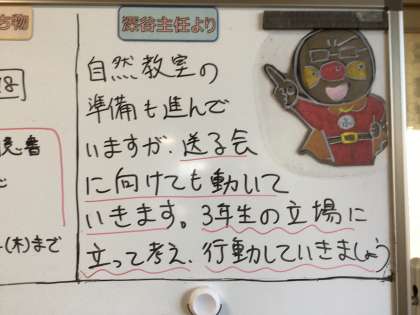 深谷主任より
自然教室の
準備も進んで
いますが、送る会
に向けても動いて
いきます。3年生の立場に
立って考え、行動していきましょう
(木)まで